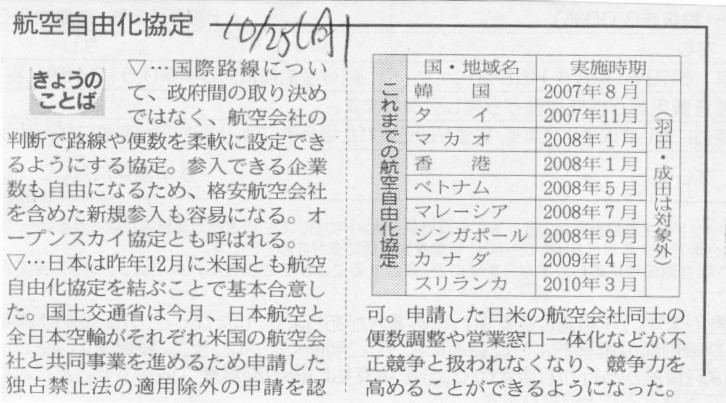 航空自由化協定
10/25(月)
きょうの
ことば
▽…国際路線につい
て、政府間の取り決め
ではなく、航空会社の
判断で路線や便数を柔軟に設定でき
るようにする協定。参入できる企業
数も自由になるため、格安航空会社
を含めた新規参入も容易になる。オ
ープンスカイ協定とも呼ばれる。
▽…日本は昨年12月に米国とも航空
自由化協定を結ぶことで基本合意し
た。国土交通省は今月、日本航空と
全日本空輸がそれぞれ米国の航空会
社と共同事業を進めるため申請した
独占禁止法の適用除外の申請を認
これまでの航空自由化協定
国・地域名 実施時期
韓国 2007年8月
タイ 2007年11月
マカオ 2008年1月
香港 2008年1月
ベトナム 2008年5月
マレーシア 2008年7月
シンガポール 2008年9月
カナダ 2009年4月
スリランカ 2010年3月
(羽田・成田は対象外)
可。申請した日米の航空会社同士の
便数調整や営業窓口一体化などが不
正競争と扱われなくなり、競争力を
高めることができるようになった。